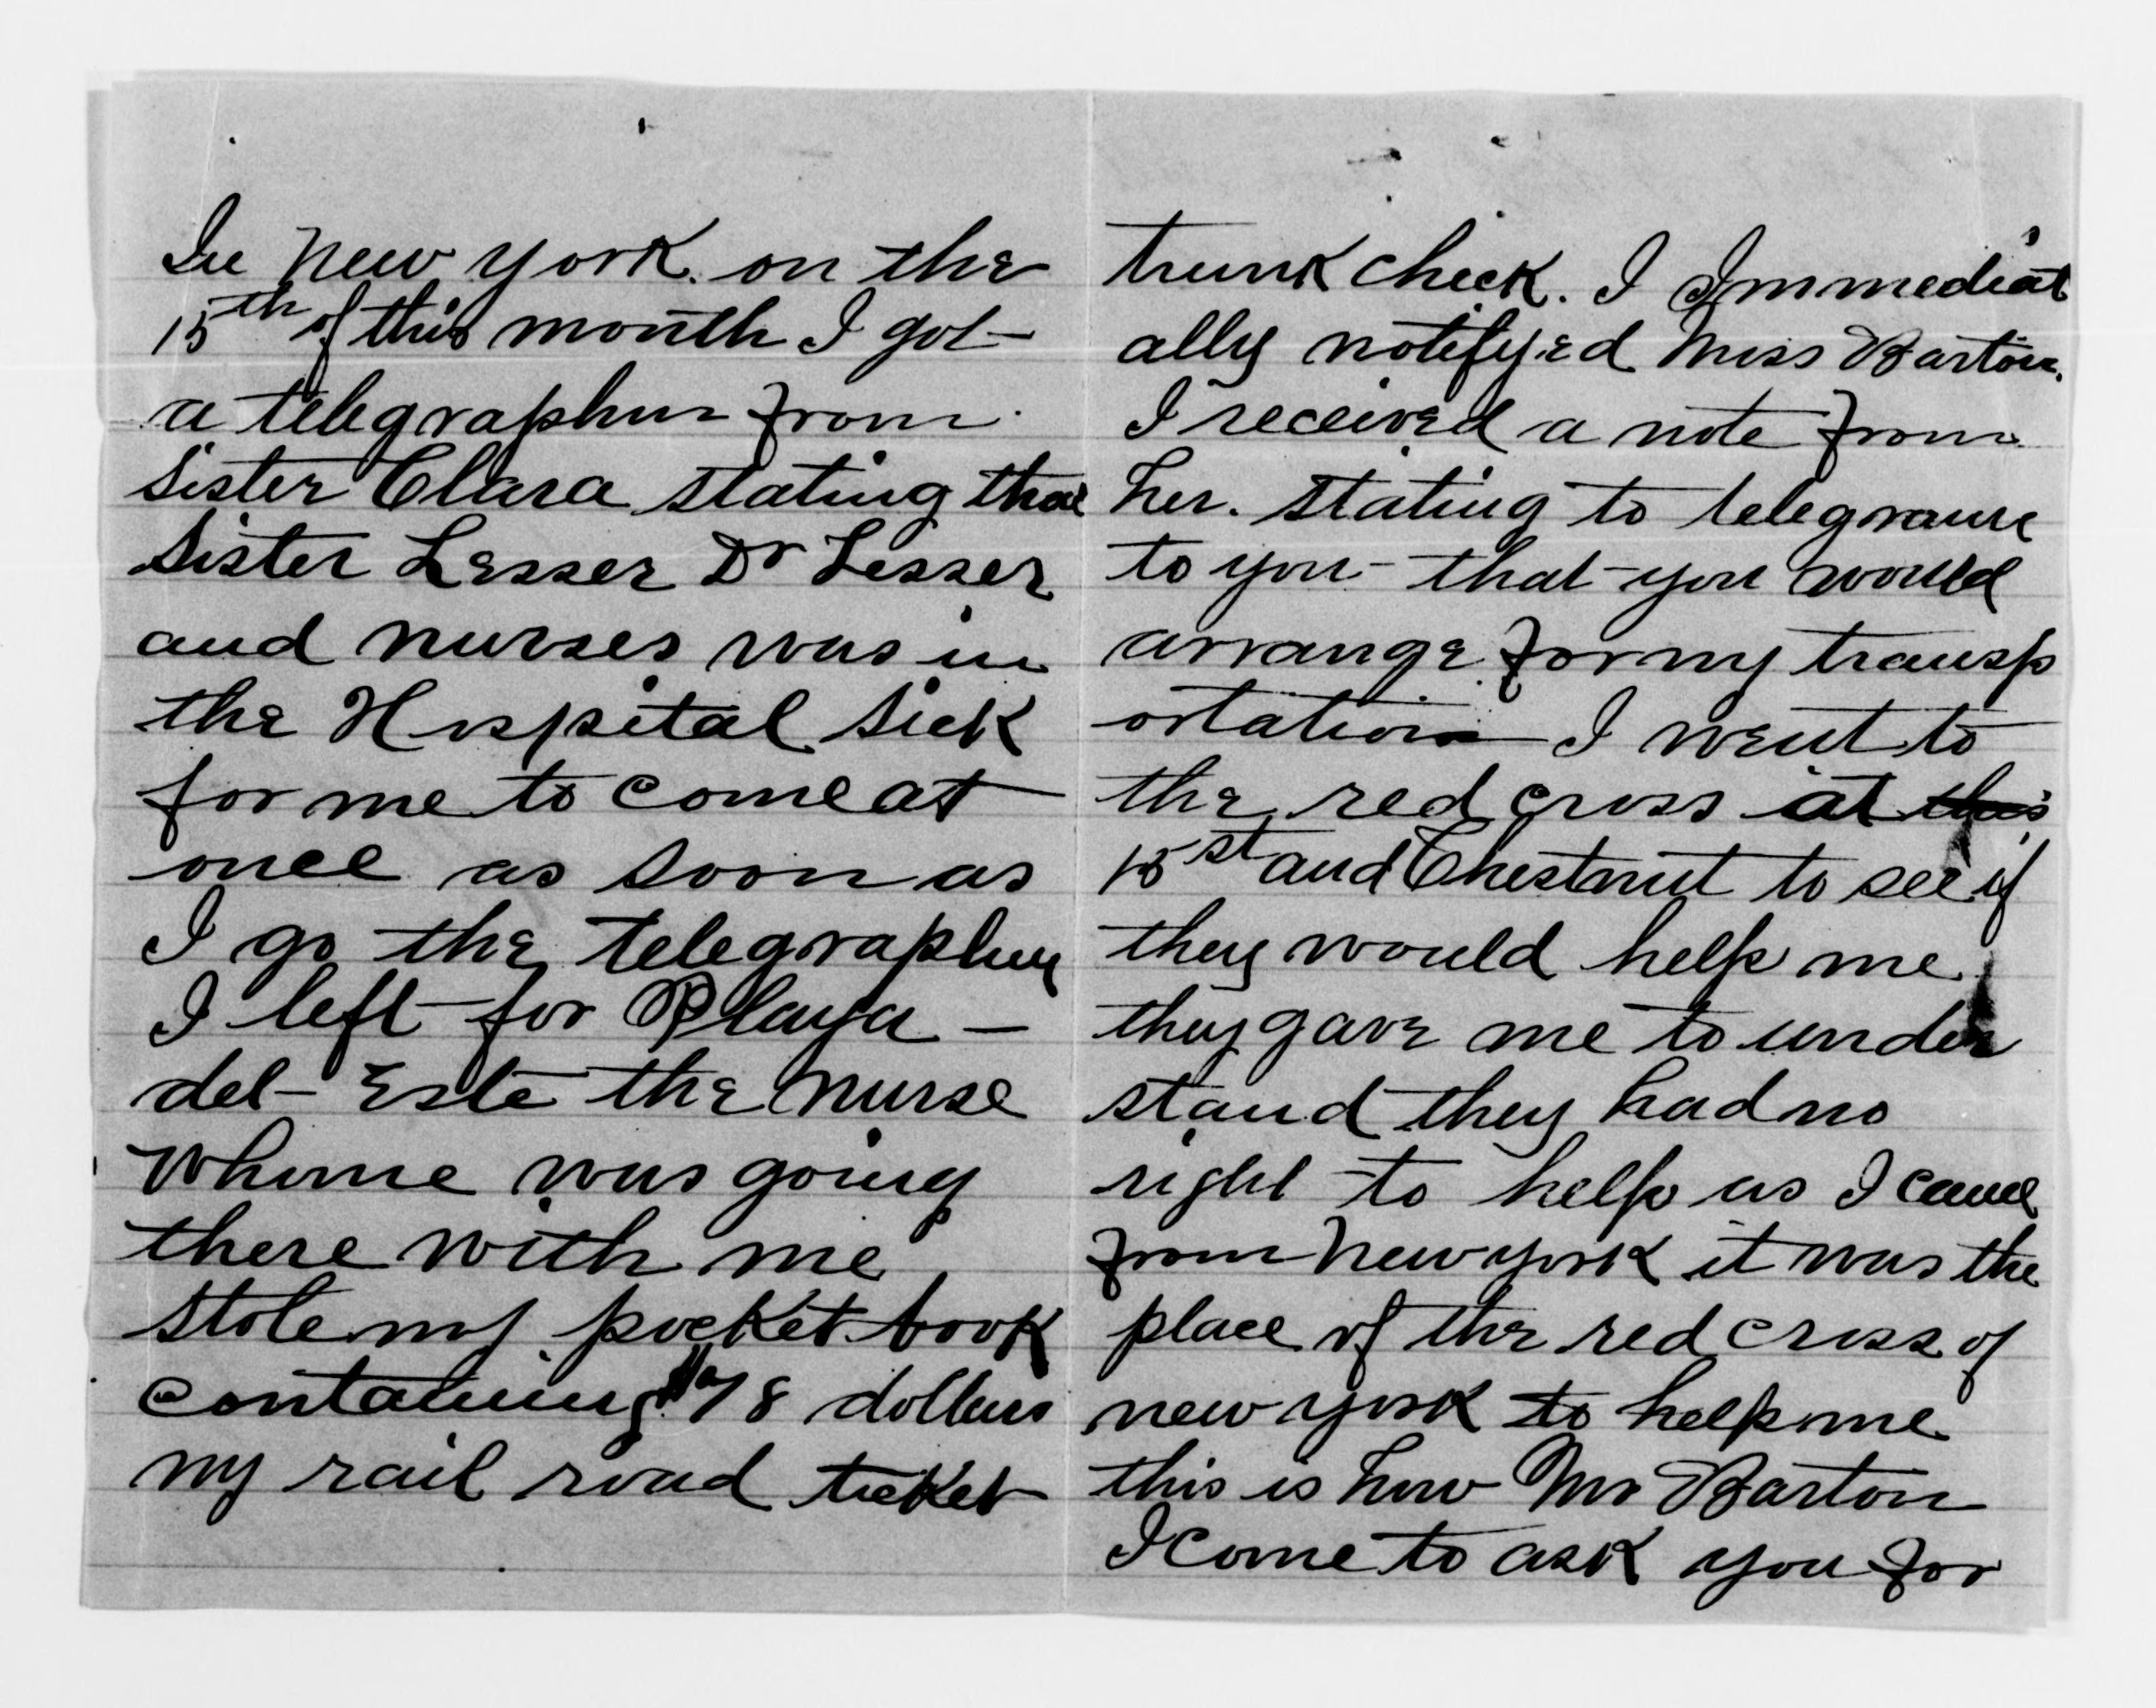 In New York. on the
15th of this month I got
a telegraphm from
Sister Clara stating that
Sister Lesser Dr Lesser
and nurses was in
the Hospital sick
for me to come at
once as soon as
I go the telegraphm
I left for Playa -
del - Este the nurse
whome was going
there with me
stole my pocket book
containing $78 dollars
my rail road ticket
trunk check. I Immediat
ally notifyed Miss Barton.
I received a note from
her. stating to telegrame
to you - that you would
arrange for my transp
ortation I went to
the red cross at this
15st and Chestnut to see if
they would help me
they gave me to under
stand they had no
right to help as I came
from New york it was the
place of the red cross of
new york to help me
this is how Mr Barton
I come to ask you for